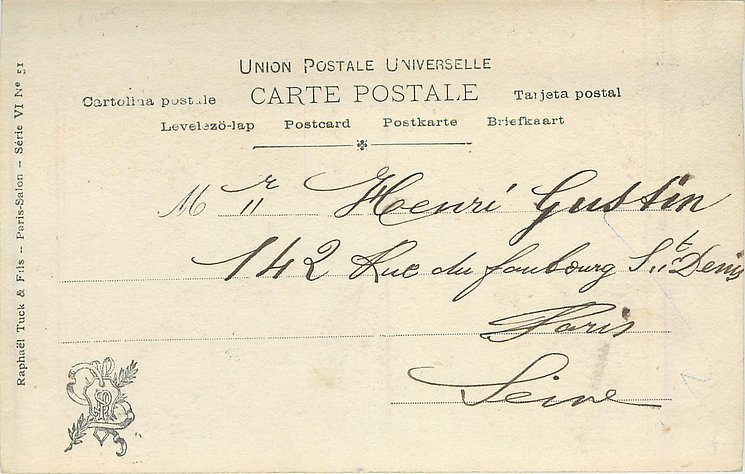 UNION POSTALE UNIVERSELLE
Cartolina postale CARTE POSTALE Tarjeta postal
Levelezö-lap Postcard Postkarte Briefkaart
Mr Henri Gustin
142 Rue du faubourg St Denis
Paris
Seine
Raphaël Tuck & Fils – Paris-Salon – Série VI No 51